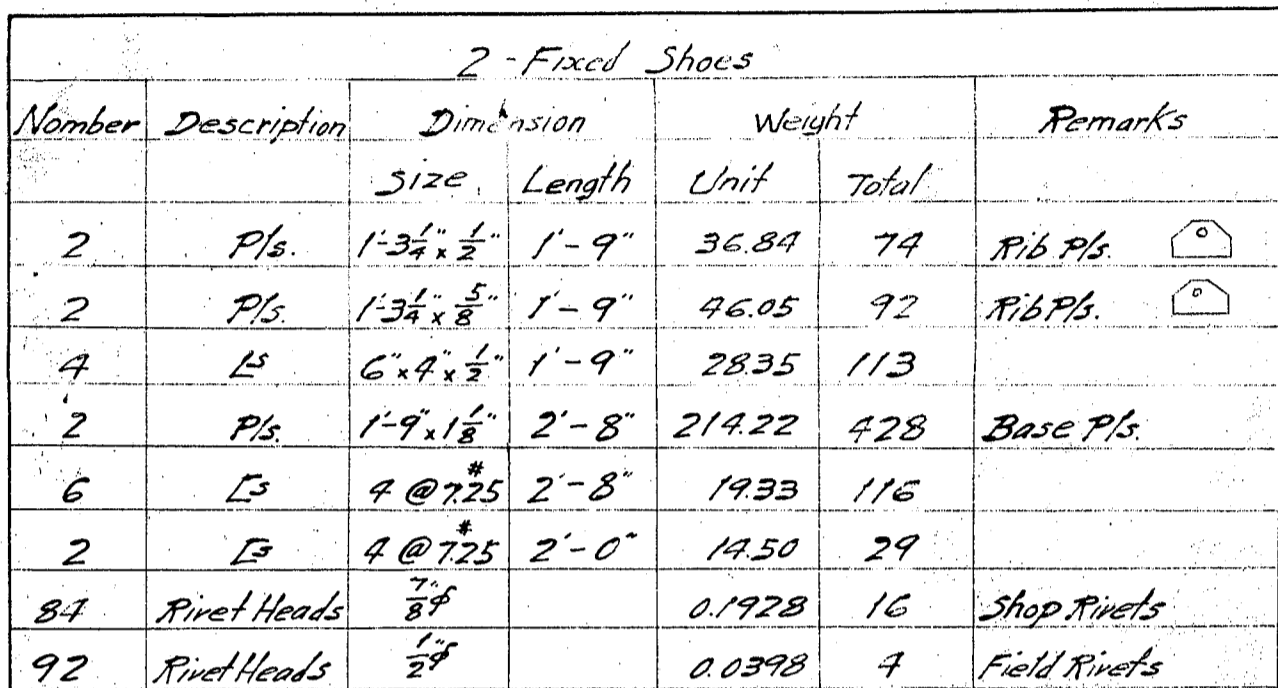 2 - Fixed Shoes
Nomber Description Dimension Weight Remarks
Size Length Unit Total
2 Pls. 1'-3 1/4" x 1/2" 1'-9" 36.84 74 Rib Pls.
2 Pls. 1'-3 1/4" x 5/8" 1'-9" 46.05 92 Rib Pls.
4 Ls 6" x 4" x 1/2" 1'-9" 28.35 113
2 Pls. 1'-9" x 1 1/8" 2'-8" 214.22 428 Base Pls.
6 [s 4 @ 7.25# 2'-8" 19.33 116
2 [s 4 @ 7.25# 2'-0" 14.50 29
84 Rivet Heads 7/8"φ 0.1928 16 Shop Rivets
92 Rivet Heads 1/2"φ 0.0398 4 Field Rivets